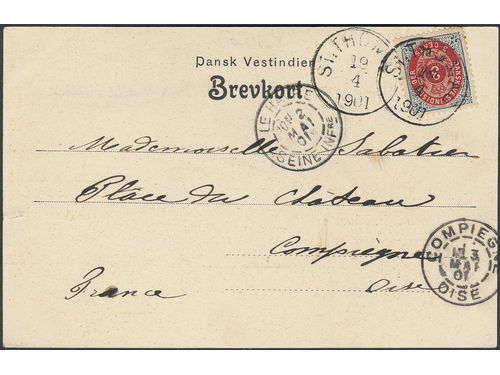 Dansk Vestindien
Brevkort
ST. THOMAS
19
4
1901
3
CENTS
LE HAVRE
2
MAI
01
SEINE INFRE
Mademoiselle Sabatier
Place du Château
Compiègne
Oise
France
COMPIEGNE
3
MAI
01
OISE